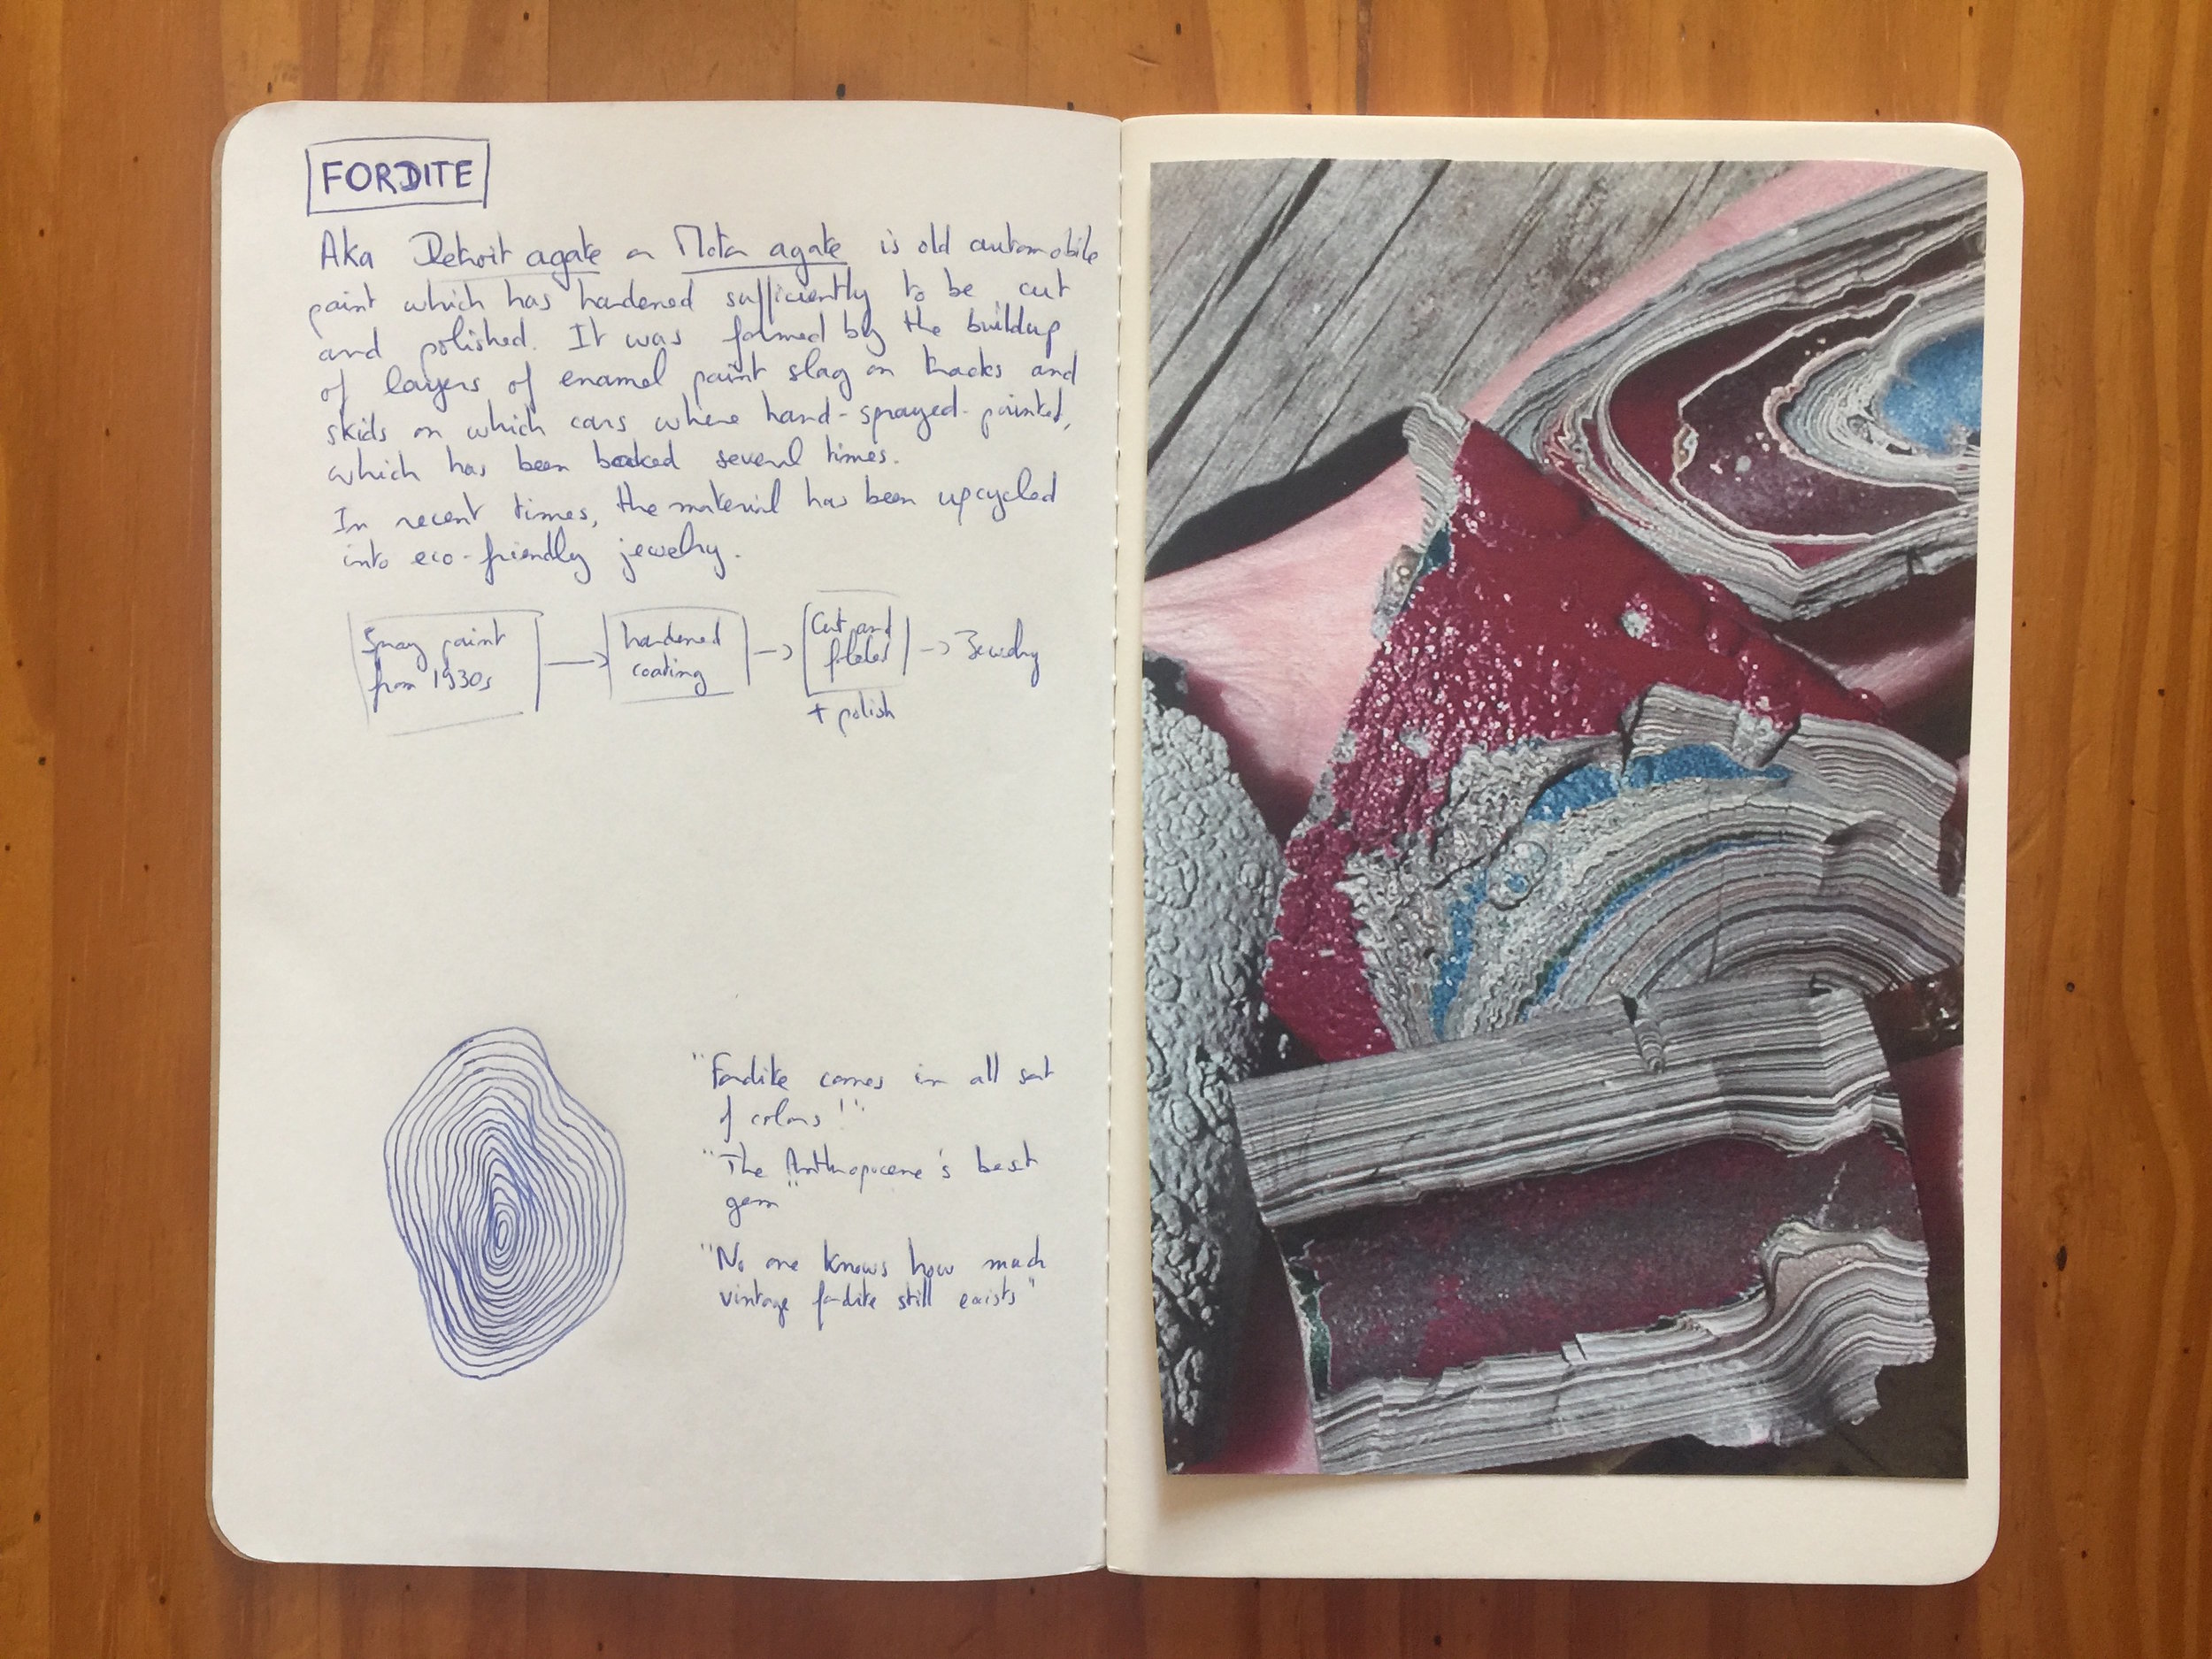 FORDITE
Aka Detroit agate or Motor agate is old automobile
paint which has hardened sufficiently to be cut
and polished. It was formed by the buildup
of layers of enamel paint slag on tracks and
skids on which cars where hand-sprayed-painted,
which has been baked several times.
In recent times, the material has been upcycled
into eco-friendly jewelry.
Spray paint
from 1930s
hardened
coating
Cut and
+ polish
Jewelry
"Fordite comes in all sort
of colors!"
"The Anthropocene's best
gem"
"No one knows how much
vintage fordite still exists"